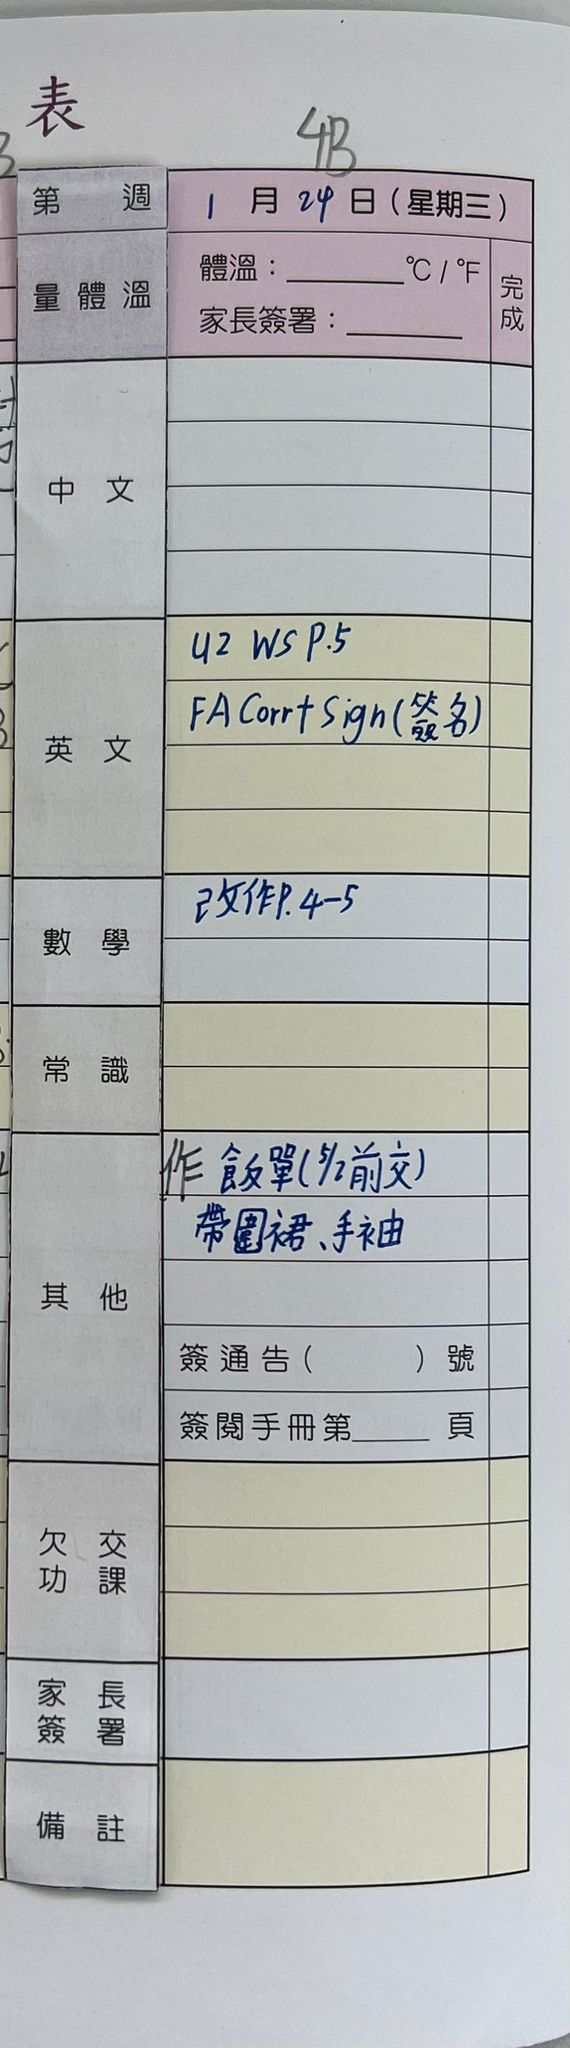 表
4B
第 週 1 月 24 日（星期三）
量體溫 體溫：______°C / °F 完成
家長簽署：______
中 文
英 文
U2 WS P.5
FA Corr+ Sign (簽名)
數 學
改作P. 4-5
常 識
其 他
作 飯單(5/2前交)
帶圍裙、手袖
簽通告（ ）號
簽閱手冊第____頁
欠 交
功 課
家 長
簽 署
備 註